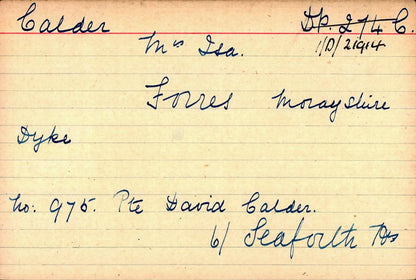 Calder DP. 274 C.
1/D/21914
Mrs Isa.
Forres Morayshire
Dyke
No: 975. Pte David Calder.
6/ Seaforth Hrs